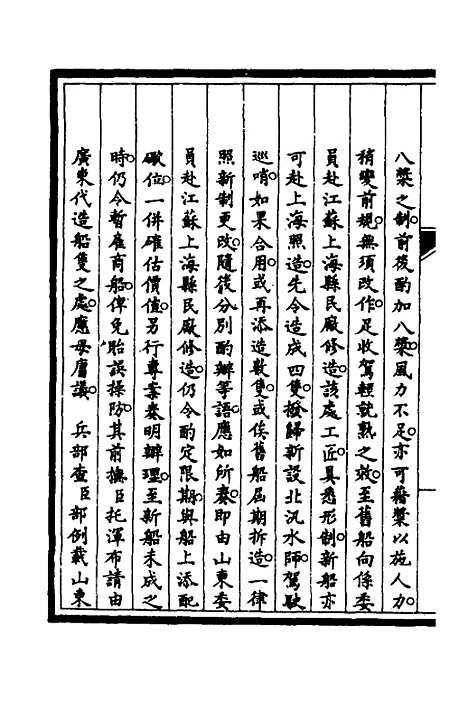 八槳之制。前後酌加八槳。風力不足。亦可藉槳以施人力。
稍變前規。無項改作。足收駕輕就熟之效。至舊船向係委
員赴江蘇上海縣民廠修造。該處工匠。具悉形制。新船亦
可赴上海照造。先令造成四隻。撥歸新設北汛水師。駕駛
巡哨。如果合用。或再添造數隻。或俟舊船屆期拆造。一律
照新制更改。隨後分別酌辦等語。應如所奏。即由山東委
員赴江蘇上海縣民廠修造。仍令酌定限期。與船上添配
礮位。一併確估價值。另行專案奏明辦理。至新船未成之
時。仍令暫雇商船。俾免貽誤操防。其前撫臣托渾布請由
廣東代造船隻之處。應毋庸議　兵部查臣部例載山東